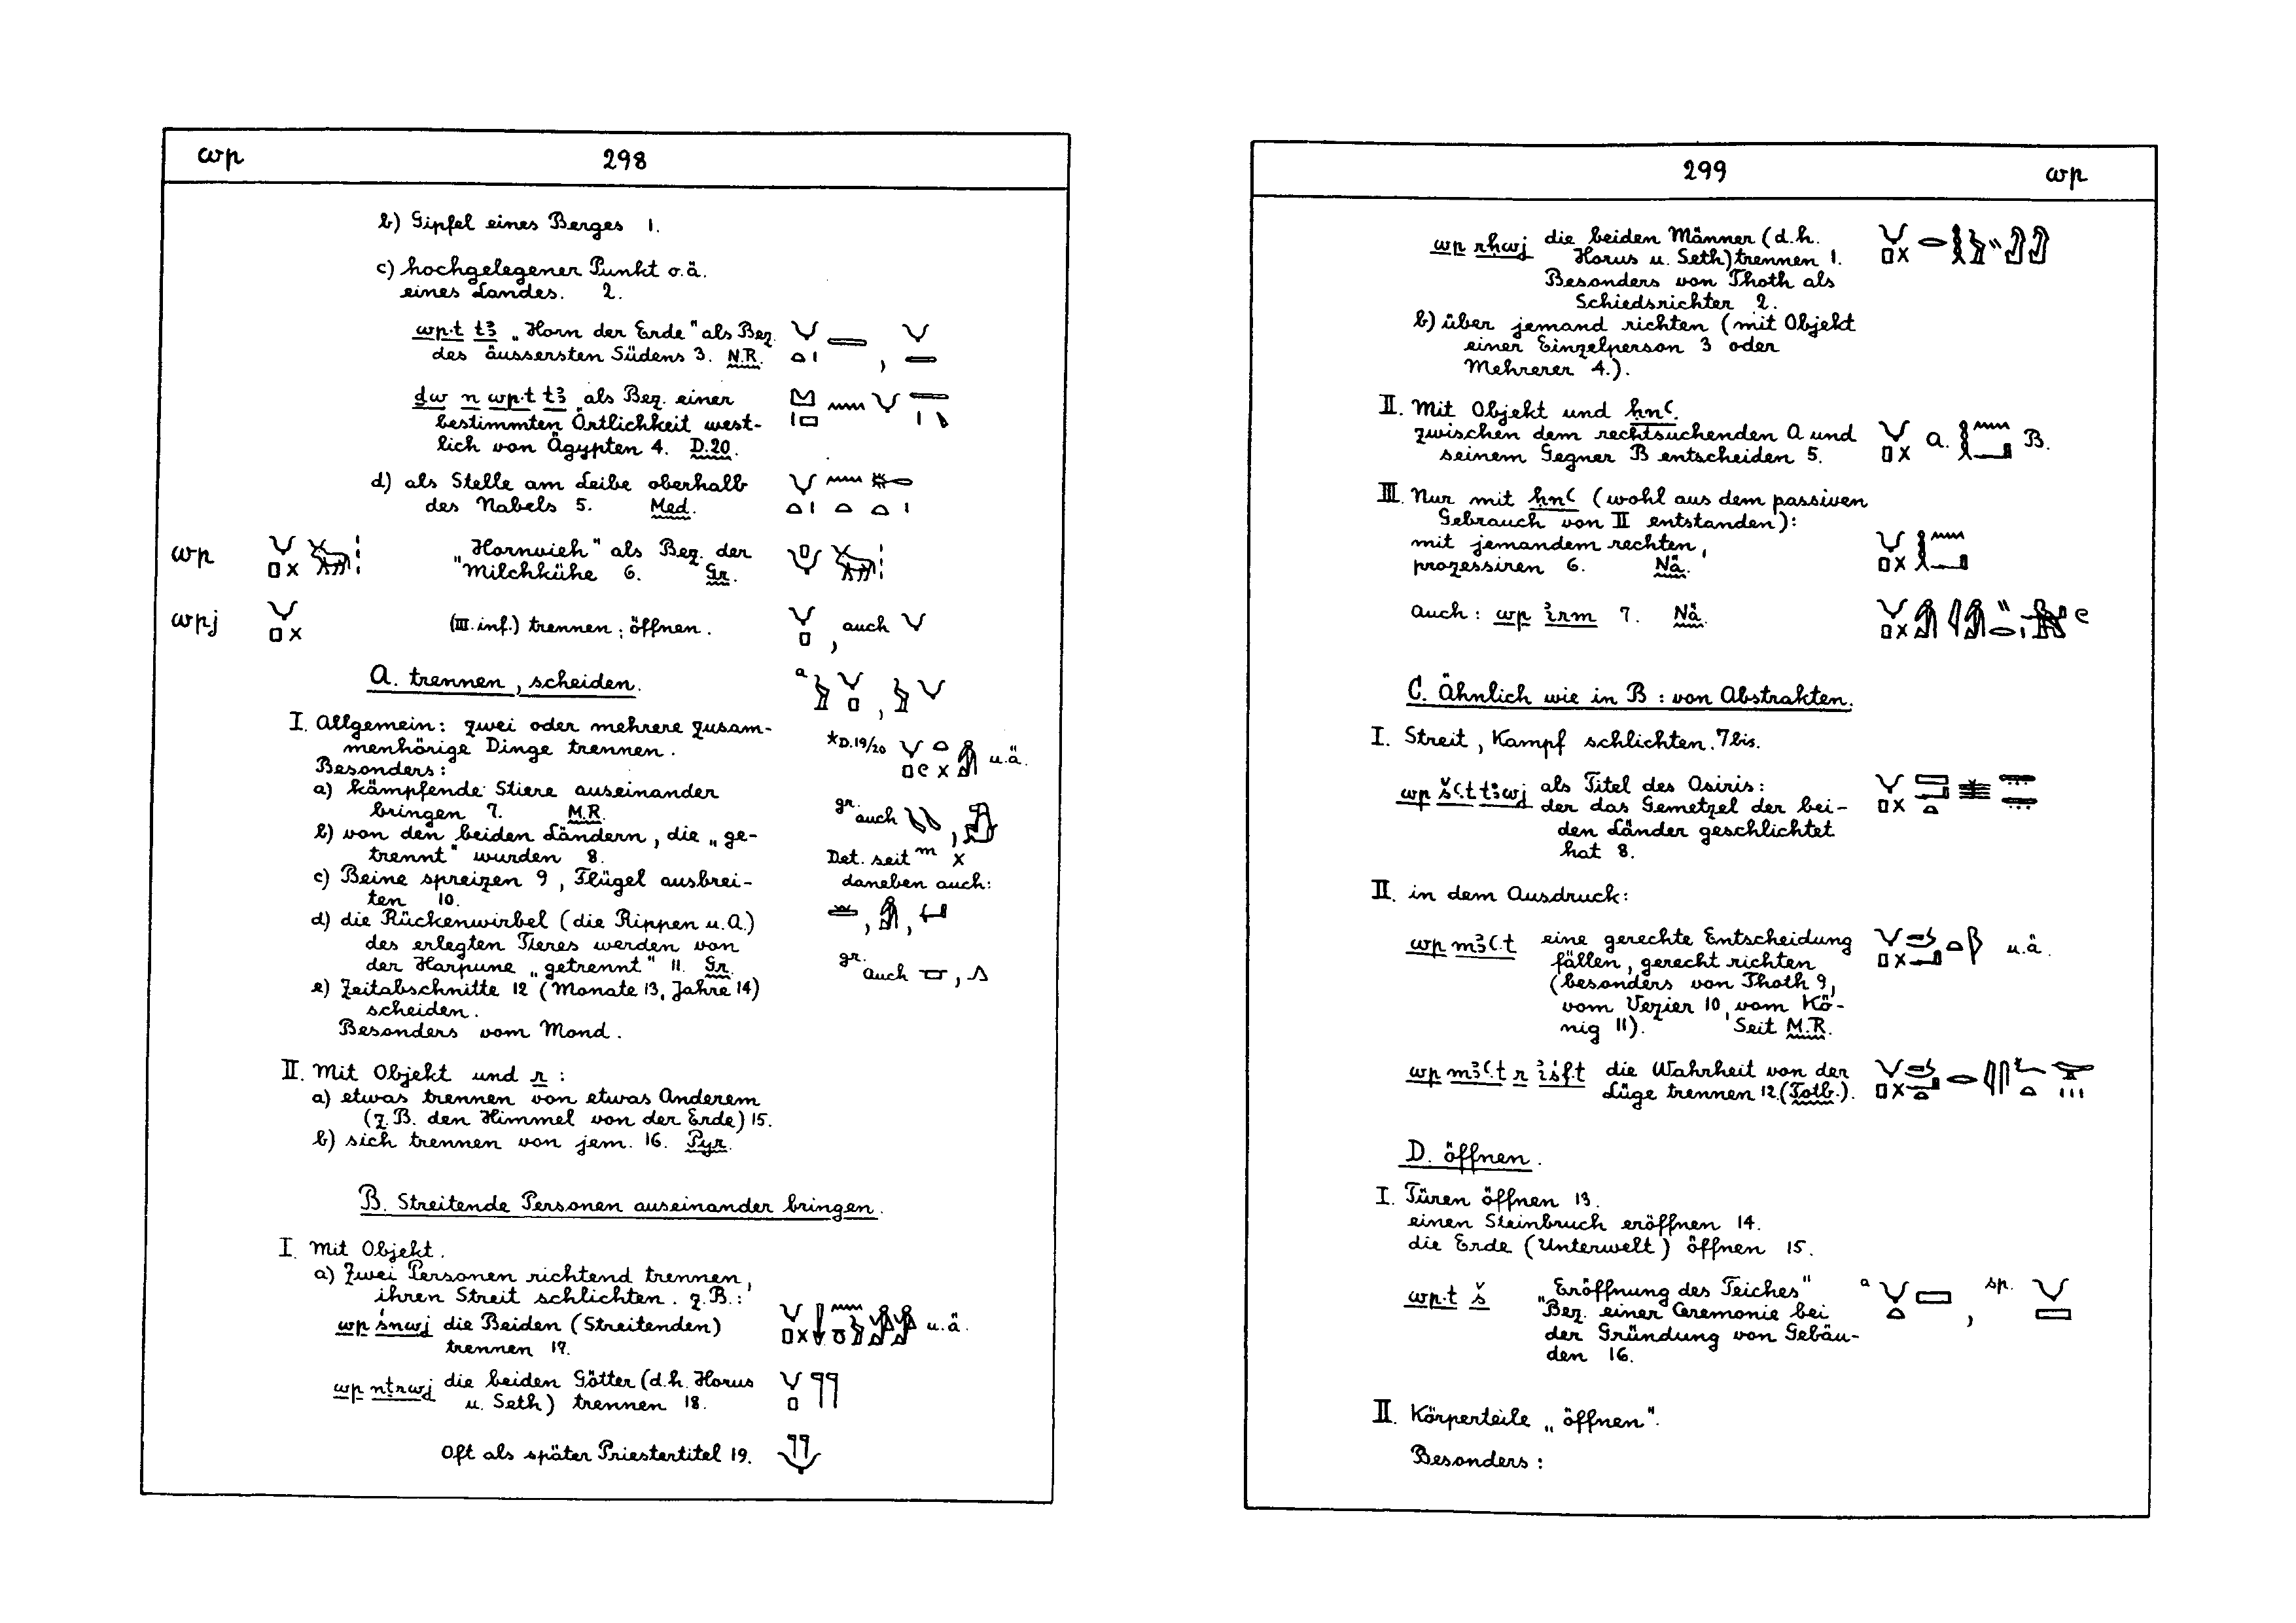 wp 298
b) Gipfel eines Berges 1.
c) hochgelegener Punkt o.ä.
eines Landes. 2.
wp.t tꜣ „Horn der Erde" als Bez.
des äussersten Südens 3. N.R.
ḏw n wp.t tꜣ als Bez. einer
bestimmten Örtlichkeit west-
lich von Ägypten 4. D.20.
d) als Stelle am Leibe oberhalb
des Nabels 5. Med.
wp „Hornvieh" als Bez. der
Milchkühe 6. Gr.
wpj (III. inf.) trennen; öffnen. , auch
A. trennen, scheiden.
a ,
I. Allgemein: zwei oder mehrere zusam-
menhörige Dinge trennen.
*D.19/20 u.ä.
Besonders:
a) kämpfende Stiere auseinander
bringen 7. M.R.
gr. auch ,
b) von den beiden Ländern, die „ge-
trennt" wurden 8.
Det. seit m x
c) Beine spreizen 9, Flügel ausbrei-
ten 10.
daneben auch:
d) die Rückenwirbel (die Rippen u.A.)
des erlegten Tieres werden von
der Harpune „getrennt" 11. Gr.
gr. auch ,
e) Zeitabschnitte 12 (Monate 13, Jahre 14)
scheiden.
Besonders vom Mond.
II. Mit Objekt und r:
a) etwas trennen von etwas Anderem
(z.B. den Himmel von der Erde) 15.
b) sich trennen von jem. 16. Pyr.
B. Streitende Personen auseinander bringen.
I. Mit Objekt.
a) Zwei Personen richtend trennen,
ihren Streit schlichten. z.B.:
wp śnwj die Beiden (Streitenden) u.ä.
trennen 17.
wp nṯrwj die beiden Götter (d.h. Horus
u. Seth) trennen 18.
Oft als später Priestertitel 19.
299 wp
wp rḥwj die beiden Männer (d.h.
Horus u. Seth) trennen 1.
Besonders von Thoth als
Schiedsrichter 2.
b) über jemand richten (mit Objekt
einer Einzelperson 3 oder
Mehrerer 4.).
II. Mit Objekt und ḥnꜥ.
zwischen dem rechtsuchenden A und A. B.
seinem Gegner B entscheiden 5.
III. Nur mit ḥnꜥ (wohl aus dem passiven
Gebrauch von II entstanden):
mit jemandem rechten,
prozessiren 6. Nä.
Auch: wp irm 7. Nä.
C. Ähnlich wie in B: von Abstrakten.
I. Streit, Kampf schlichten. 7bis.
wp šꜥ.t tꜣwj als Titel des Osiris:
der das Gemetzel der bei-
den Länder geschlichtet
hat 8.
II. in dem Ausdruck:
wp mꜣꜥ.t eine gerechte Entscheidung u.ä.
fällen, gerecht richten
(besonders von Thoth 9,
vom Vezier 10, vom Kö-
nig 11). Seit M.R.
wp mꜣꜥ.t r iśf.t die Wahrheit von der
Lüge trennen 12. (Totb.).
D. öffnen.
I. Türen öffnen 13.
einen Steinbruch eröffnen 14.
die Erde (Unterwelt) öffnen 15.
wp.t š „Eröffnung des Teiches" a , sp.
Bez. einer Ceremonie bei
der Gründung von Gebäu-
den 16.
II. Körperteile „öffnen".
Besonders: